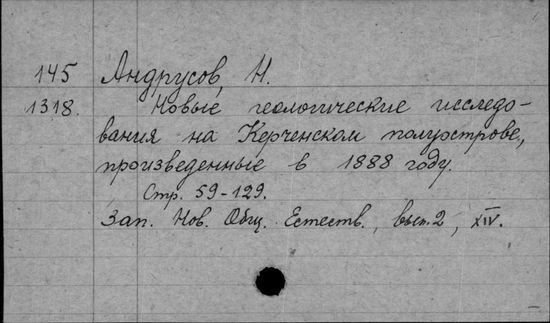 145 Андрусов, Н.
1318. Новые геологические исследо-
вания на Керченском полуострове,
произведенные в 1888 году.
Стр. 59-129.
Зап. Нов. Общ. Естеств., вып. 2, XIV.